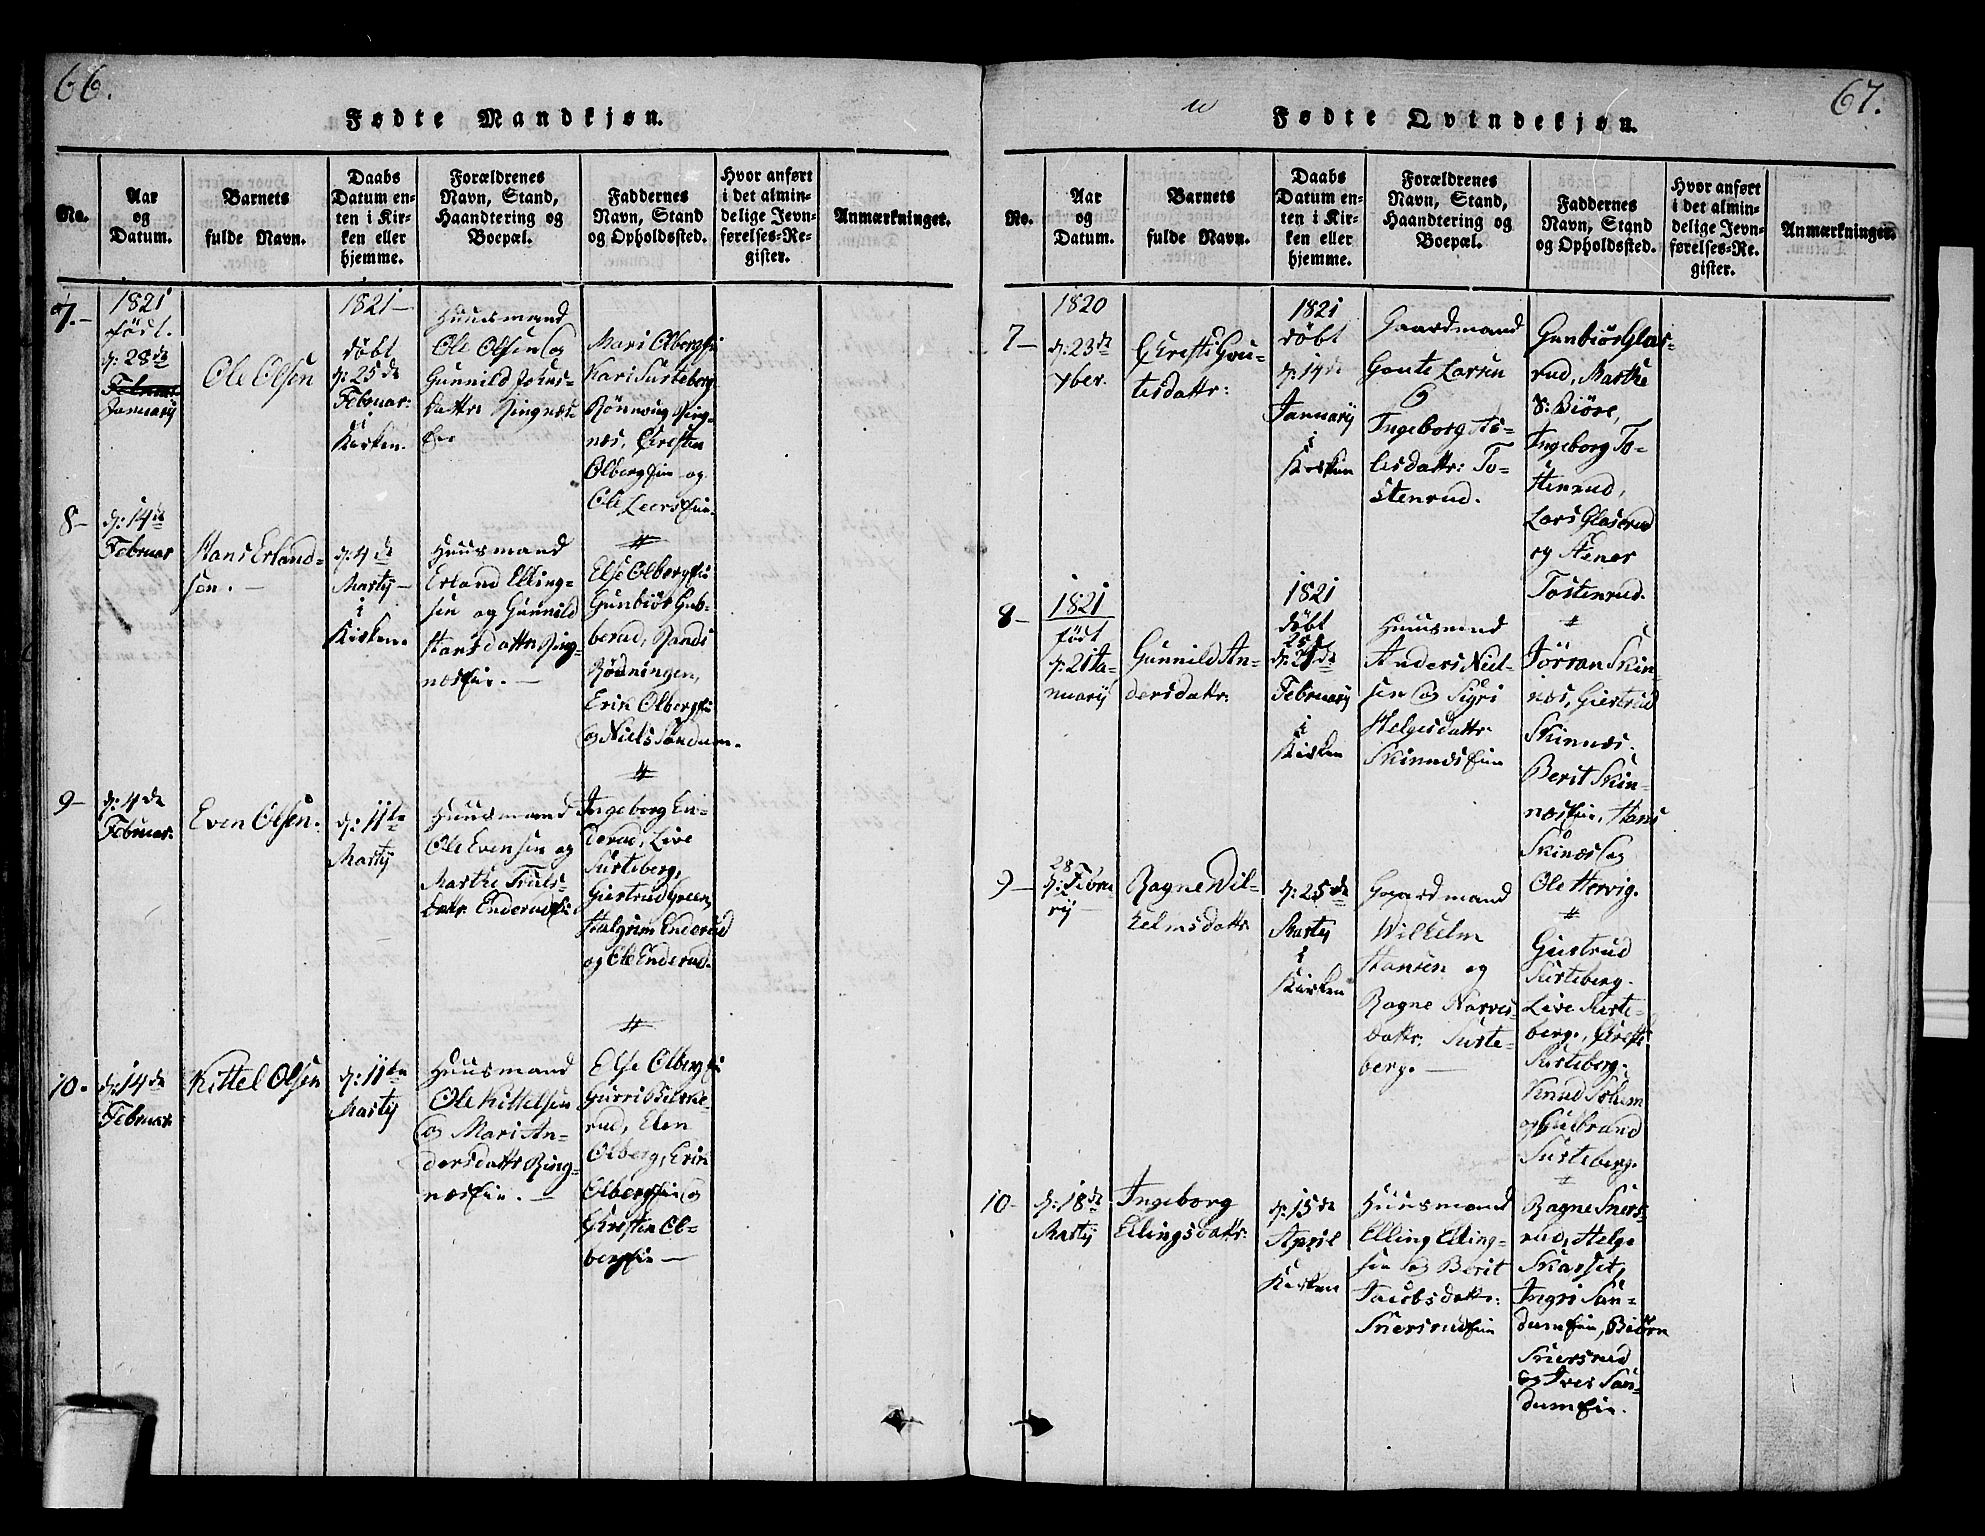 66.
Fødte Mandkjøn.
No.
Aar
og
Datum.
Barnets
fulde Navn.
Daabs
Datum en-
ten i Kir-
ken eller
hjemme.
Forældrenes
Navn, Stand,
Haandtering og
Boepæl.
Faddernes
Navn, Stand
og Opholdssted.
Hvor anført
i det almin-
delige Jevn-
førelses-Re-
gister.
Anmærkninger.
7.
1821
født.
d: 28de
Januarij
Ole Olsen
1821
døbt
d: 25de
Februar:
i
Kirken.
Huusmand
Ole Olsen og
Gunnild
dattr Ringnæs
Eie
Mari Olbergsei
Kari Surteberg
Rønnoug Ring-
næs, Kirsten
Olbergseie og
Ole
8
d: 14de
Februar
Hans Erland-
sen.
d: 4de
Martij
i
Kirken.
Huusmand
Erland Elling-
sen og Gunnild
Hansdattr Ring-
næseie.
Else Olbergsei
Gunbiør Gul-
berud, Randi
Rødningen,
Erik Olbergsei
og Niels Sandum.
9
d: 4de
Februar.
Even Olsen.
d: 11te
Martij
Huusmand
Ole Evensen og
Marthe Truls-
dattr. Enderudei
Ingeborg En-
derud, Live
Surteberg,
Giertrud
Halgrim Enderud
og Ole Enderud.
10.
d: 14de
Februar
Kittel Olsen
d: 11te
Martij
Huusmand
Ole Kittelsen
og Mari An-
dersdattr Ring-
næseie.
Else Olbergsei
Gurri
rud, Elen
Olberg, Erik
Olbergseie og
Kirsten Ol-
bergseie
67.
Fødte Qvindekjøn.
No.
Aar
og
Datum.
Barnets
fulde Navn.
Daabs
Datum en-
ten i Kir-
ken eller
hjemme.
Forældrenes
Navn, Stand,
Haandtering og
Boepæl.
Faddernes
Navn, Stand
og Opholdssted.
Hvor anført
i det almin-
delige Jevn-
førelses-Re-
gister.
Anmærkninger.
7
1820
d: 23de
Kiersti Gou-
tesdattr:
1821
døbt
d: 14de
Januarij
i
Kirken
Gaardmand
Goute Larsen
og
Ingeborg
To-
stenrud.
Gunbiør Glas-
rud, Marthe
S: Biøre,
Ingeborg To-
stenrud,
Lars Glaserud
og Stener
Tostenrud.
8
1821
født
d: 21 Ja-
nuarij
Gunnild An-
dersdattr:
1821
døbt
25de
Februarij
i
Kirken
Huusmand
Anders Niel-
sen og Sigri
Helgesdattr
Skinnæseie
Jørran Skin-
næs, Giertrud
Skinnæs,
Berit Skin-
næseie, Hans
Skinæs og
Ole Hervig.
9
28
Ragne Wil-
helmsdattr
d: 25de
Martij
i
Kirken
Gaardmand
Wilhelm
Hansen og
Ragne Narves-
dattr. Surte-
berg.
Giertrud
Surteberg.
Live Surte-
berg., Kirsti
Surteberg.
Knud Solem
og Gulbrand
Surteberg.
10
d: 18de
Martij
Ingeborg
Ellingsdattr:
d: 15de
April
Kirken
Huusmand
Elling Elling-
sen og Berit
Jacobsdattr:
Snersrudeie
Ragne Sners-
rud, Helge
Skarset,
Ingri San-
dumeie, Biørn
Snersrud
og Iver San-
dumeie.